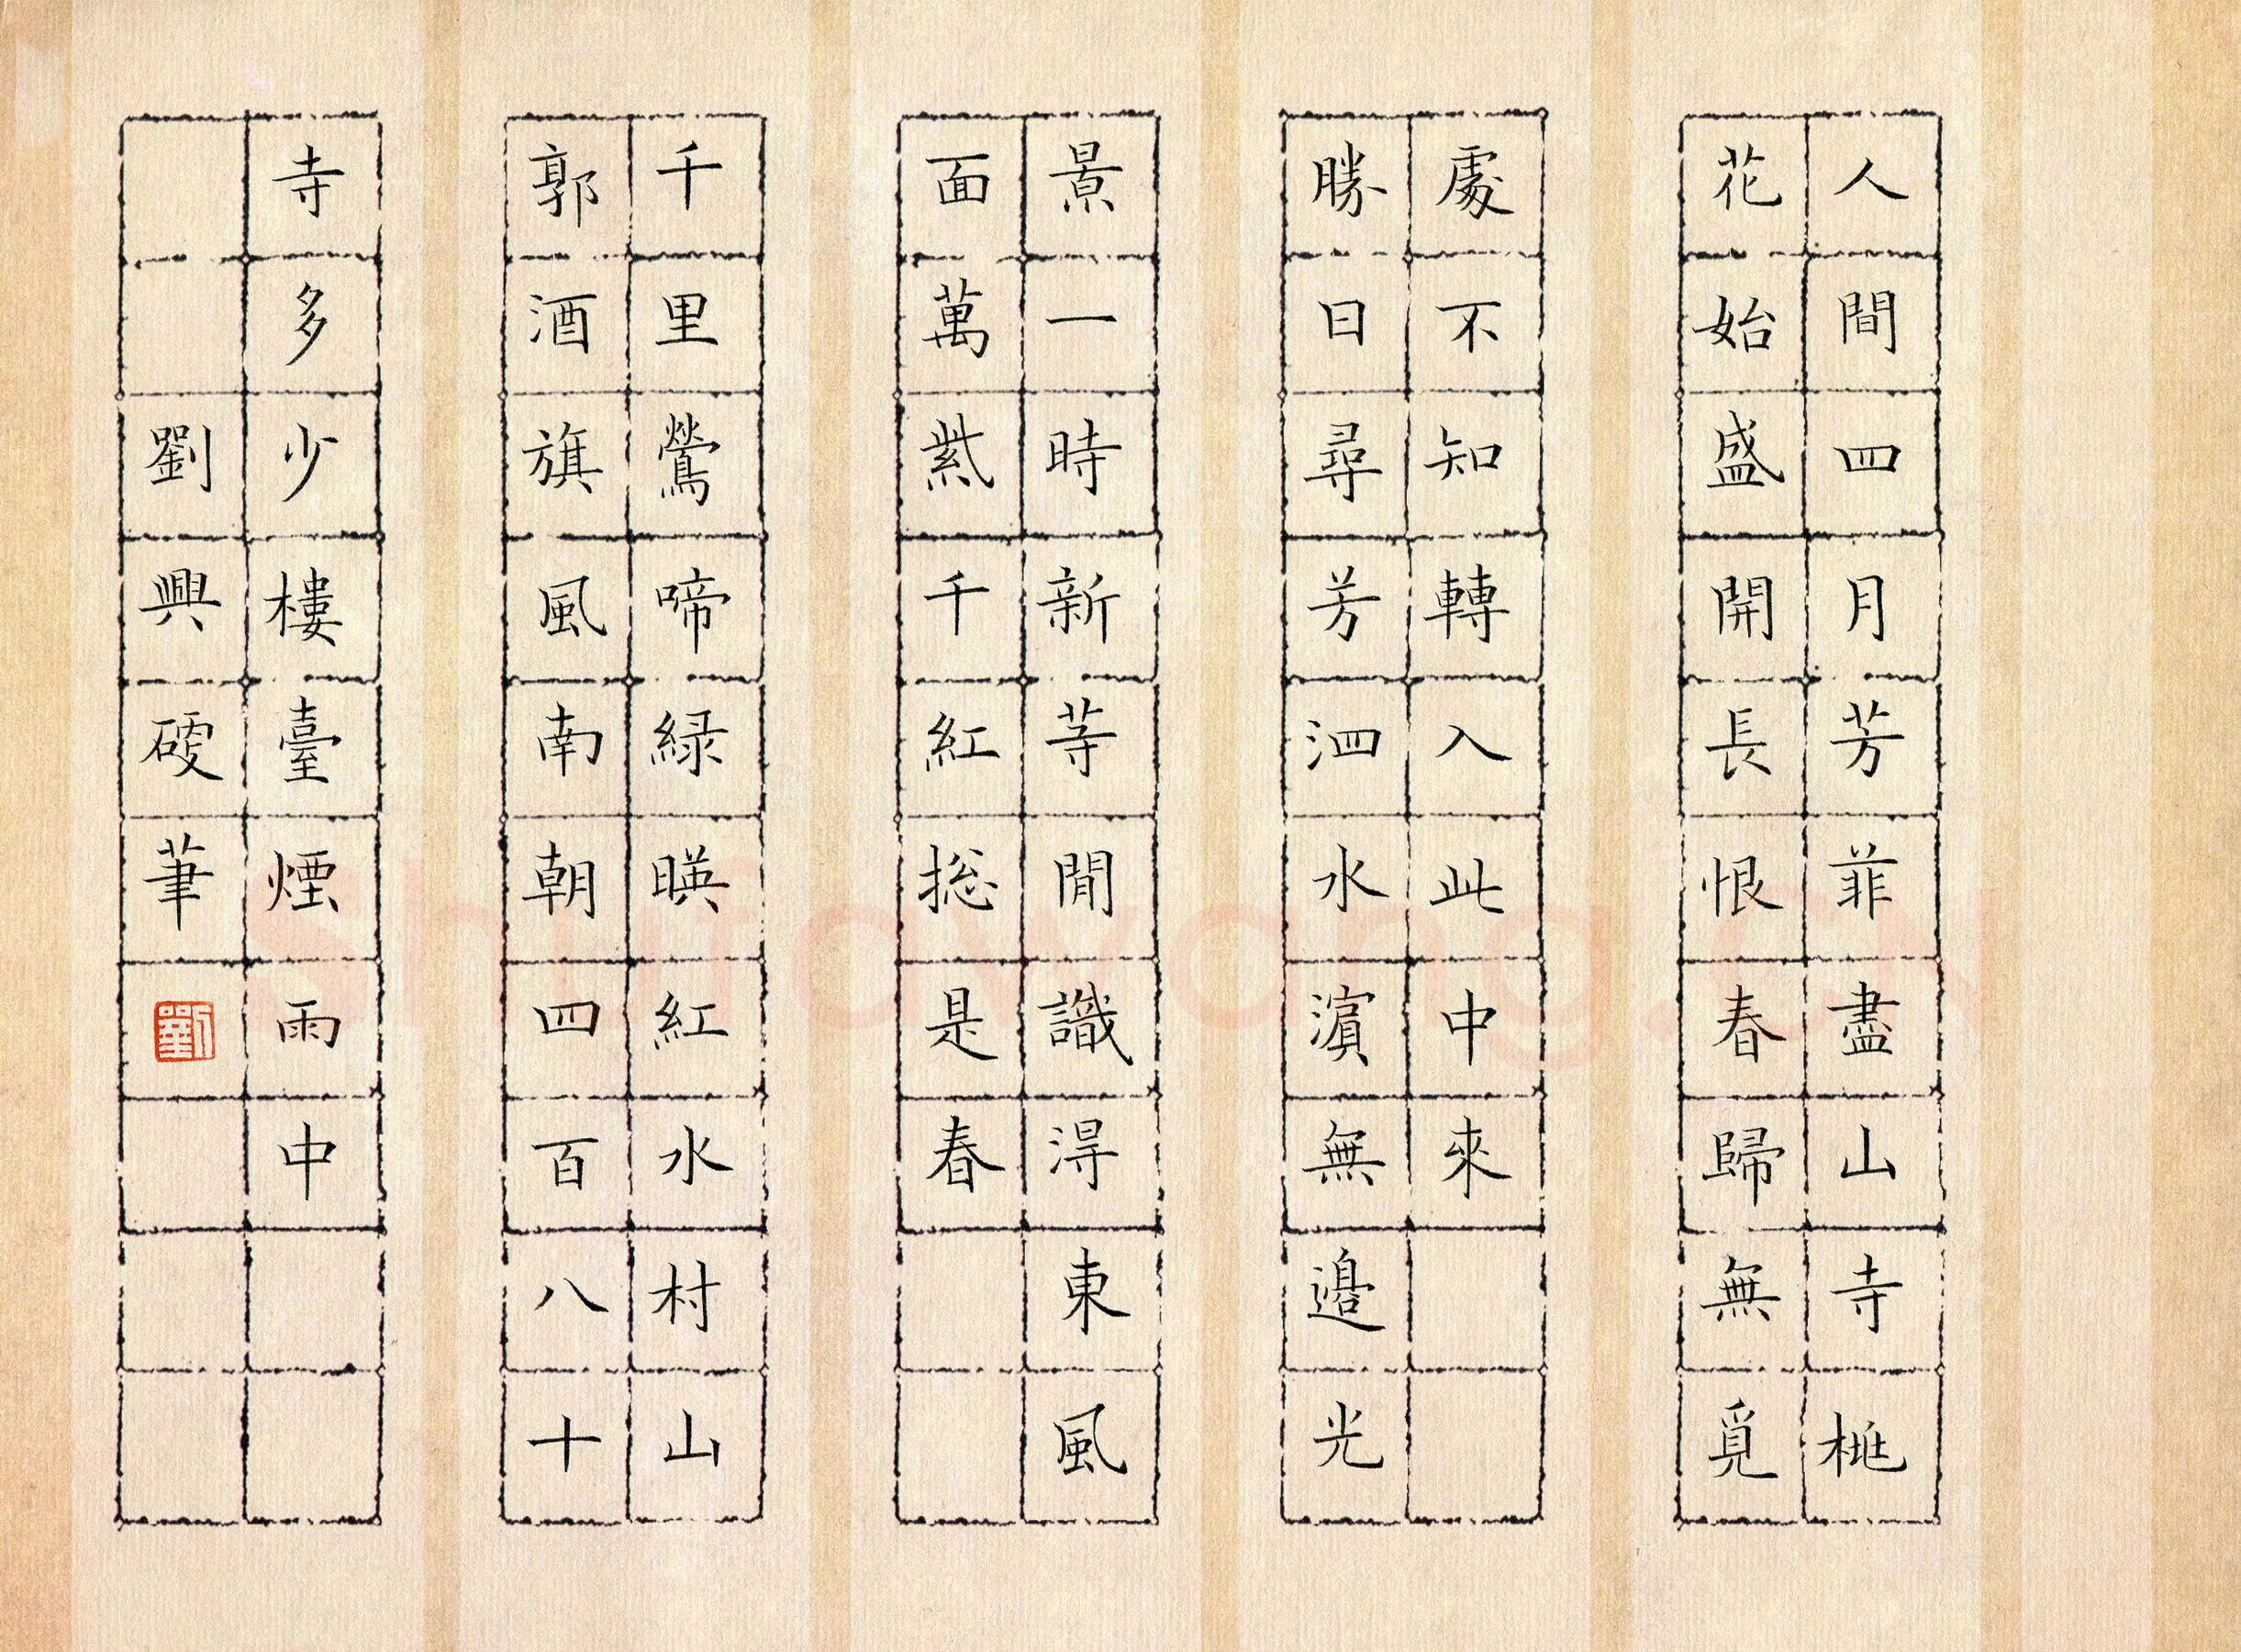 人間四月芳菲盡山寺桃
花始盛開長恨春歸無覓
處不知轉入此中來
勝日尋芳泗水濱無邊光
景一時新等閒識得東風
面萬紫千紅総是春
千里鶯啼緑暎紅水村山
郭酒旗風南朝四百八十
寺多少樓臺煙雨中
劉興硬筆